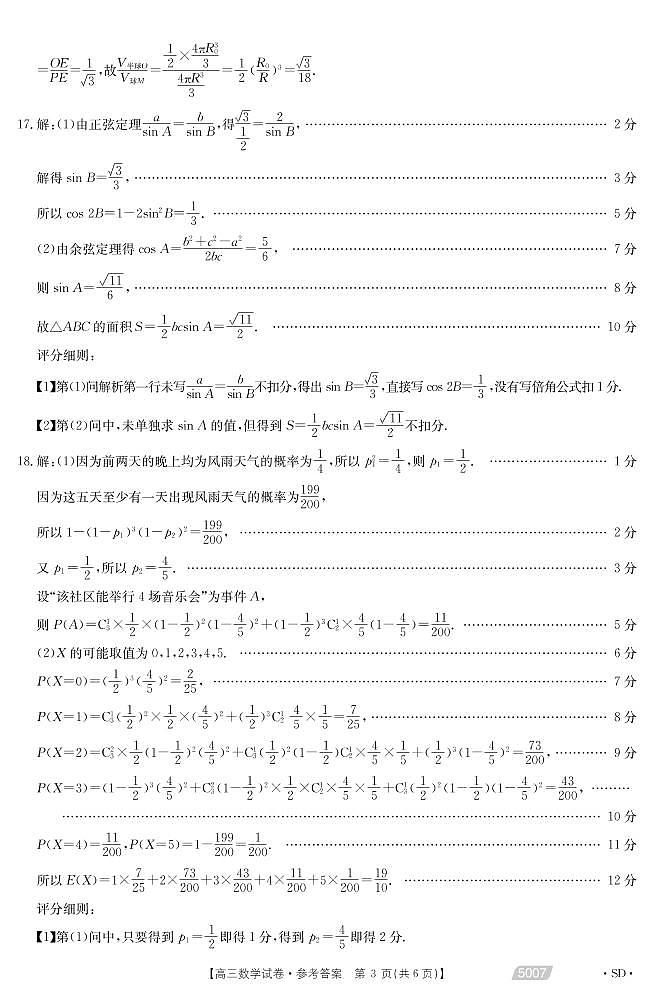 =OE/PE=1/√3,故V半球O/V球M=(1/2×4πR₀³/3)/(4πR³/3)=1/2(R₀/R)³=√3/18.
17.解:(1)由正弦定理a/sin A=b/sin B,得√3/(1/2)=2/sin B,…… 2分
解得 sin B=√3/3,…… 3分
所以 cos 2B=1-2sin²B=1/3.…… 5分
(2)由余弦定理得 cos A=(b²+c²-a²)/2bc=5/6,…… 7分
则 sin A=√11/6,…… 8分
故△ABC的面积S=1/2bcsin A=√11/2.…… 10分
评分细则:
【1】第(1)问解析第一行未写a/sin A=b/sin B不扣分,得出 sin B=√3/3,直接写 cos 2B=1/3,没有写倍角公式扣1分.
【2】第(2)问中,未单独求 sin A 的值,但得到 S=1/2bcsin A=√11/2不扣分.
18.解:(1)因为前两天的晚上均为风雨天气的概率为1/4,所以 p₁²=1/4,则 p₁=1/2.…… 1分
因为这五天至少有一天出现风雨天气的概率为199/200,
所以 1-(1-p₁)³(1-p₂)²=199/200,…… 2分
又 p₁=1/2,所以 p₂=4/5.…… 3分
设“该社区能举行4场音乐会”为事件A,
则 P(A)=C₃¹×1/2×(1-1/2)²(1-4/5)²+(1-1/2)³C₂¹×4/5(1-4/5)=11/200.…… 5分
(2)X 的可能取值为 0,1,2,3,4,5.…… 6分
P(X=0)=(1/2)³(4/5)²=2/25,…… 7分
P(X=1)=C₃¹(1/2)²×1/2×(4/5)²+(1/2)³C₂¹ 4/5×1/5=7/25,…… 8分
P(X=2)=C₃²×1/2(1-1/2)²(4/5)²+C₃¹(1/2)²(1-1/2)C₂¹×4/5×1/5+(1/2)³(1-4/5)²=73/200,…… 9分
P(X=3)=(1-1/2)³(4/5)²+C₃²(1-1/2)²×1/2×C₂¹×4/5×1/5+C₃¹(1/2)²(1-1/2)(1-4/5)²=43/200,……
…… 10分
P(X=4)=11/200,P(X=5)=1-199/200=1/200.…… 11分
所以 E(X)=1×7/25+2×73/200+3×43/200+4×11/200+5×1/200=19/10.…… 12分
评分细则:
【1】第(1)问中,只要得到 p₁=1/2即得1分,得到 p₂=4/5即得2分.
【高三数学试卷·参考答案 第 3 页(共 6 页)】 5007 ·SD·